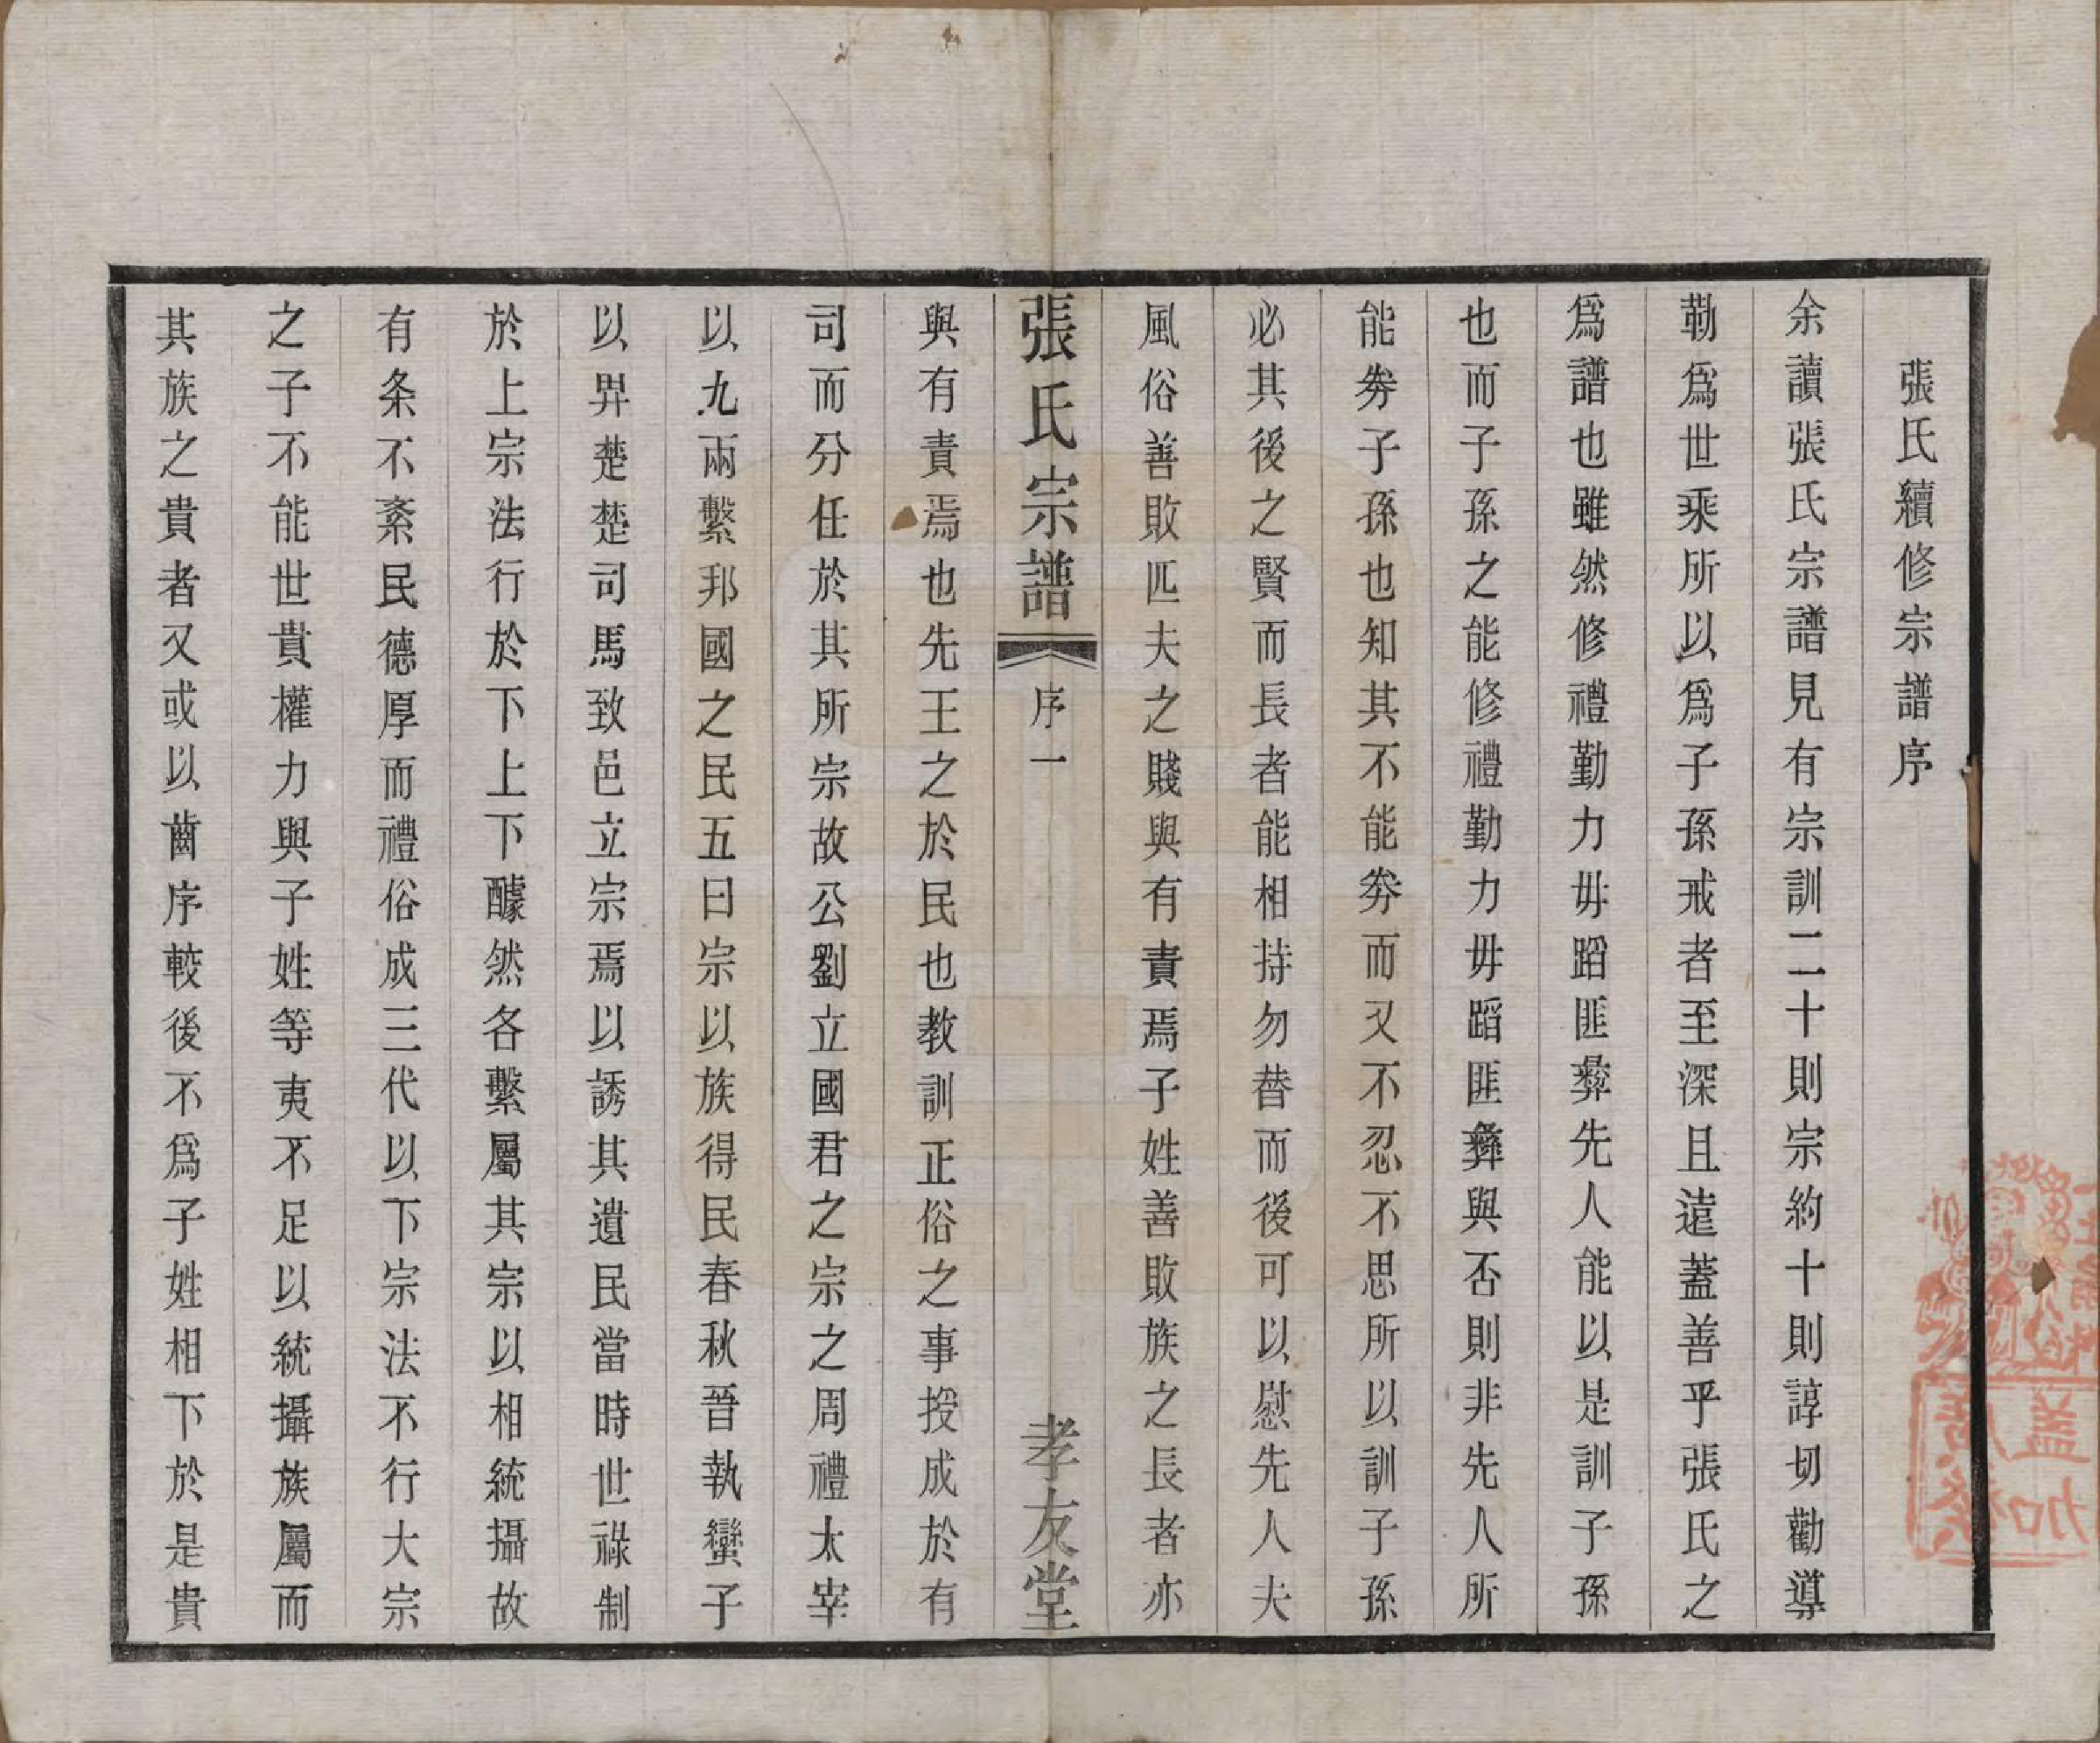 張氏續修宗譜序
余讀張氏宗譜見有宗訓二十則宗約十則諄切勸導
勒爲世乘所以爲子孫戒者至深且遠蓋善乎張氏之
爲譜也雖然修禮勤力毋蹈匪彝先人能以是訓子孫
也而子孫之能修禮勤力毋蹈匪彝與否則非先人所
能券子孫也知其不能券而又不忍不思所以訓子孫
必其後之賢而長者能相持勿替而後可以慰先人夫
風俗善敗匹夫之賤與有責焉子姓善敗族之長者亦
張氏宗譜 序一 孝友堂
與有責焉也先王之於民也教訓正俗之事授成於有
司而分任於其所宗故公劉立國君之宗之周禮太宰
以九兩繫邦國之民五曰宗以族得民春秋晉執蠻子
以畀楚楚司馬致邑立宗焉以誘其遺民當時世祿制
於上宗法行於下上下醵然各繫屬其宗以相統攝故
有条不紊民德厚而禮俗成三代以下宗法不行大宗
之子不能世貴權力與子姓等夷不足以統攝族屬而
其族之貴者又或以齒序較後不爲子姓相下於是貴